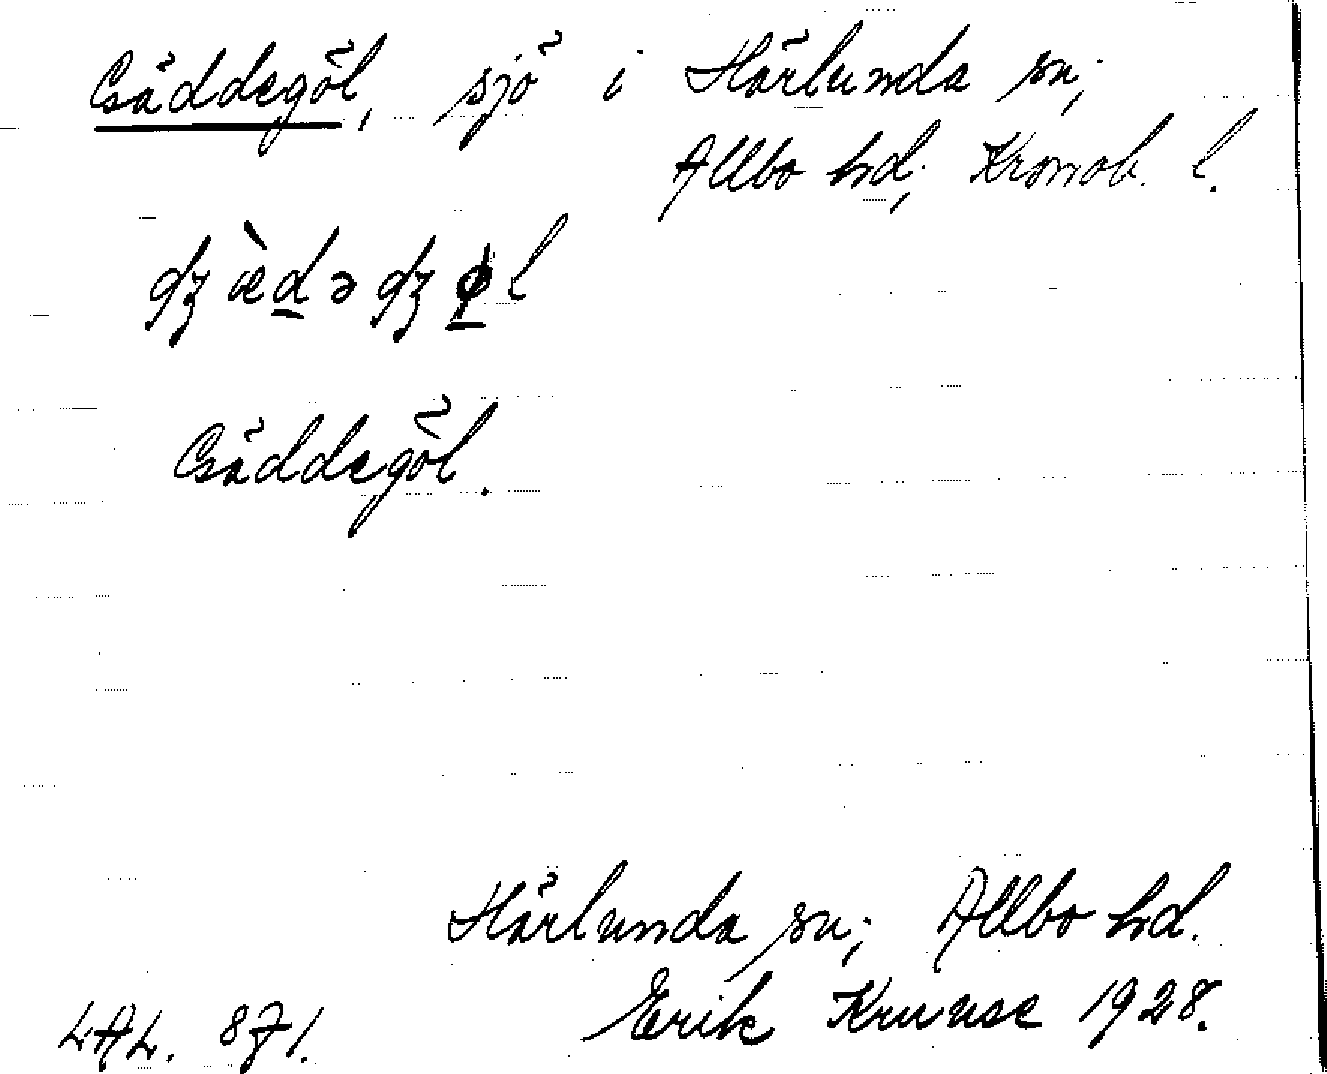 Gäddegöl, sjö i Härlunda sn;
Allbo hd; Kronob. l.
Gäddegöl.
Härlunda sn; Allbo hd.
Erik Kruuse 1928.
LAL. 871.